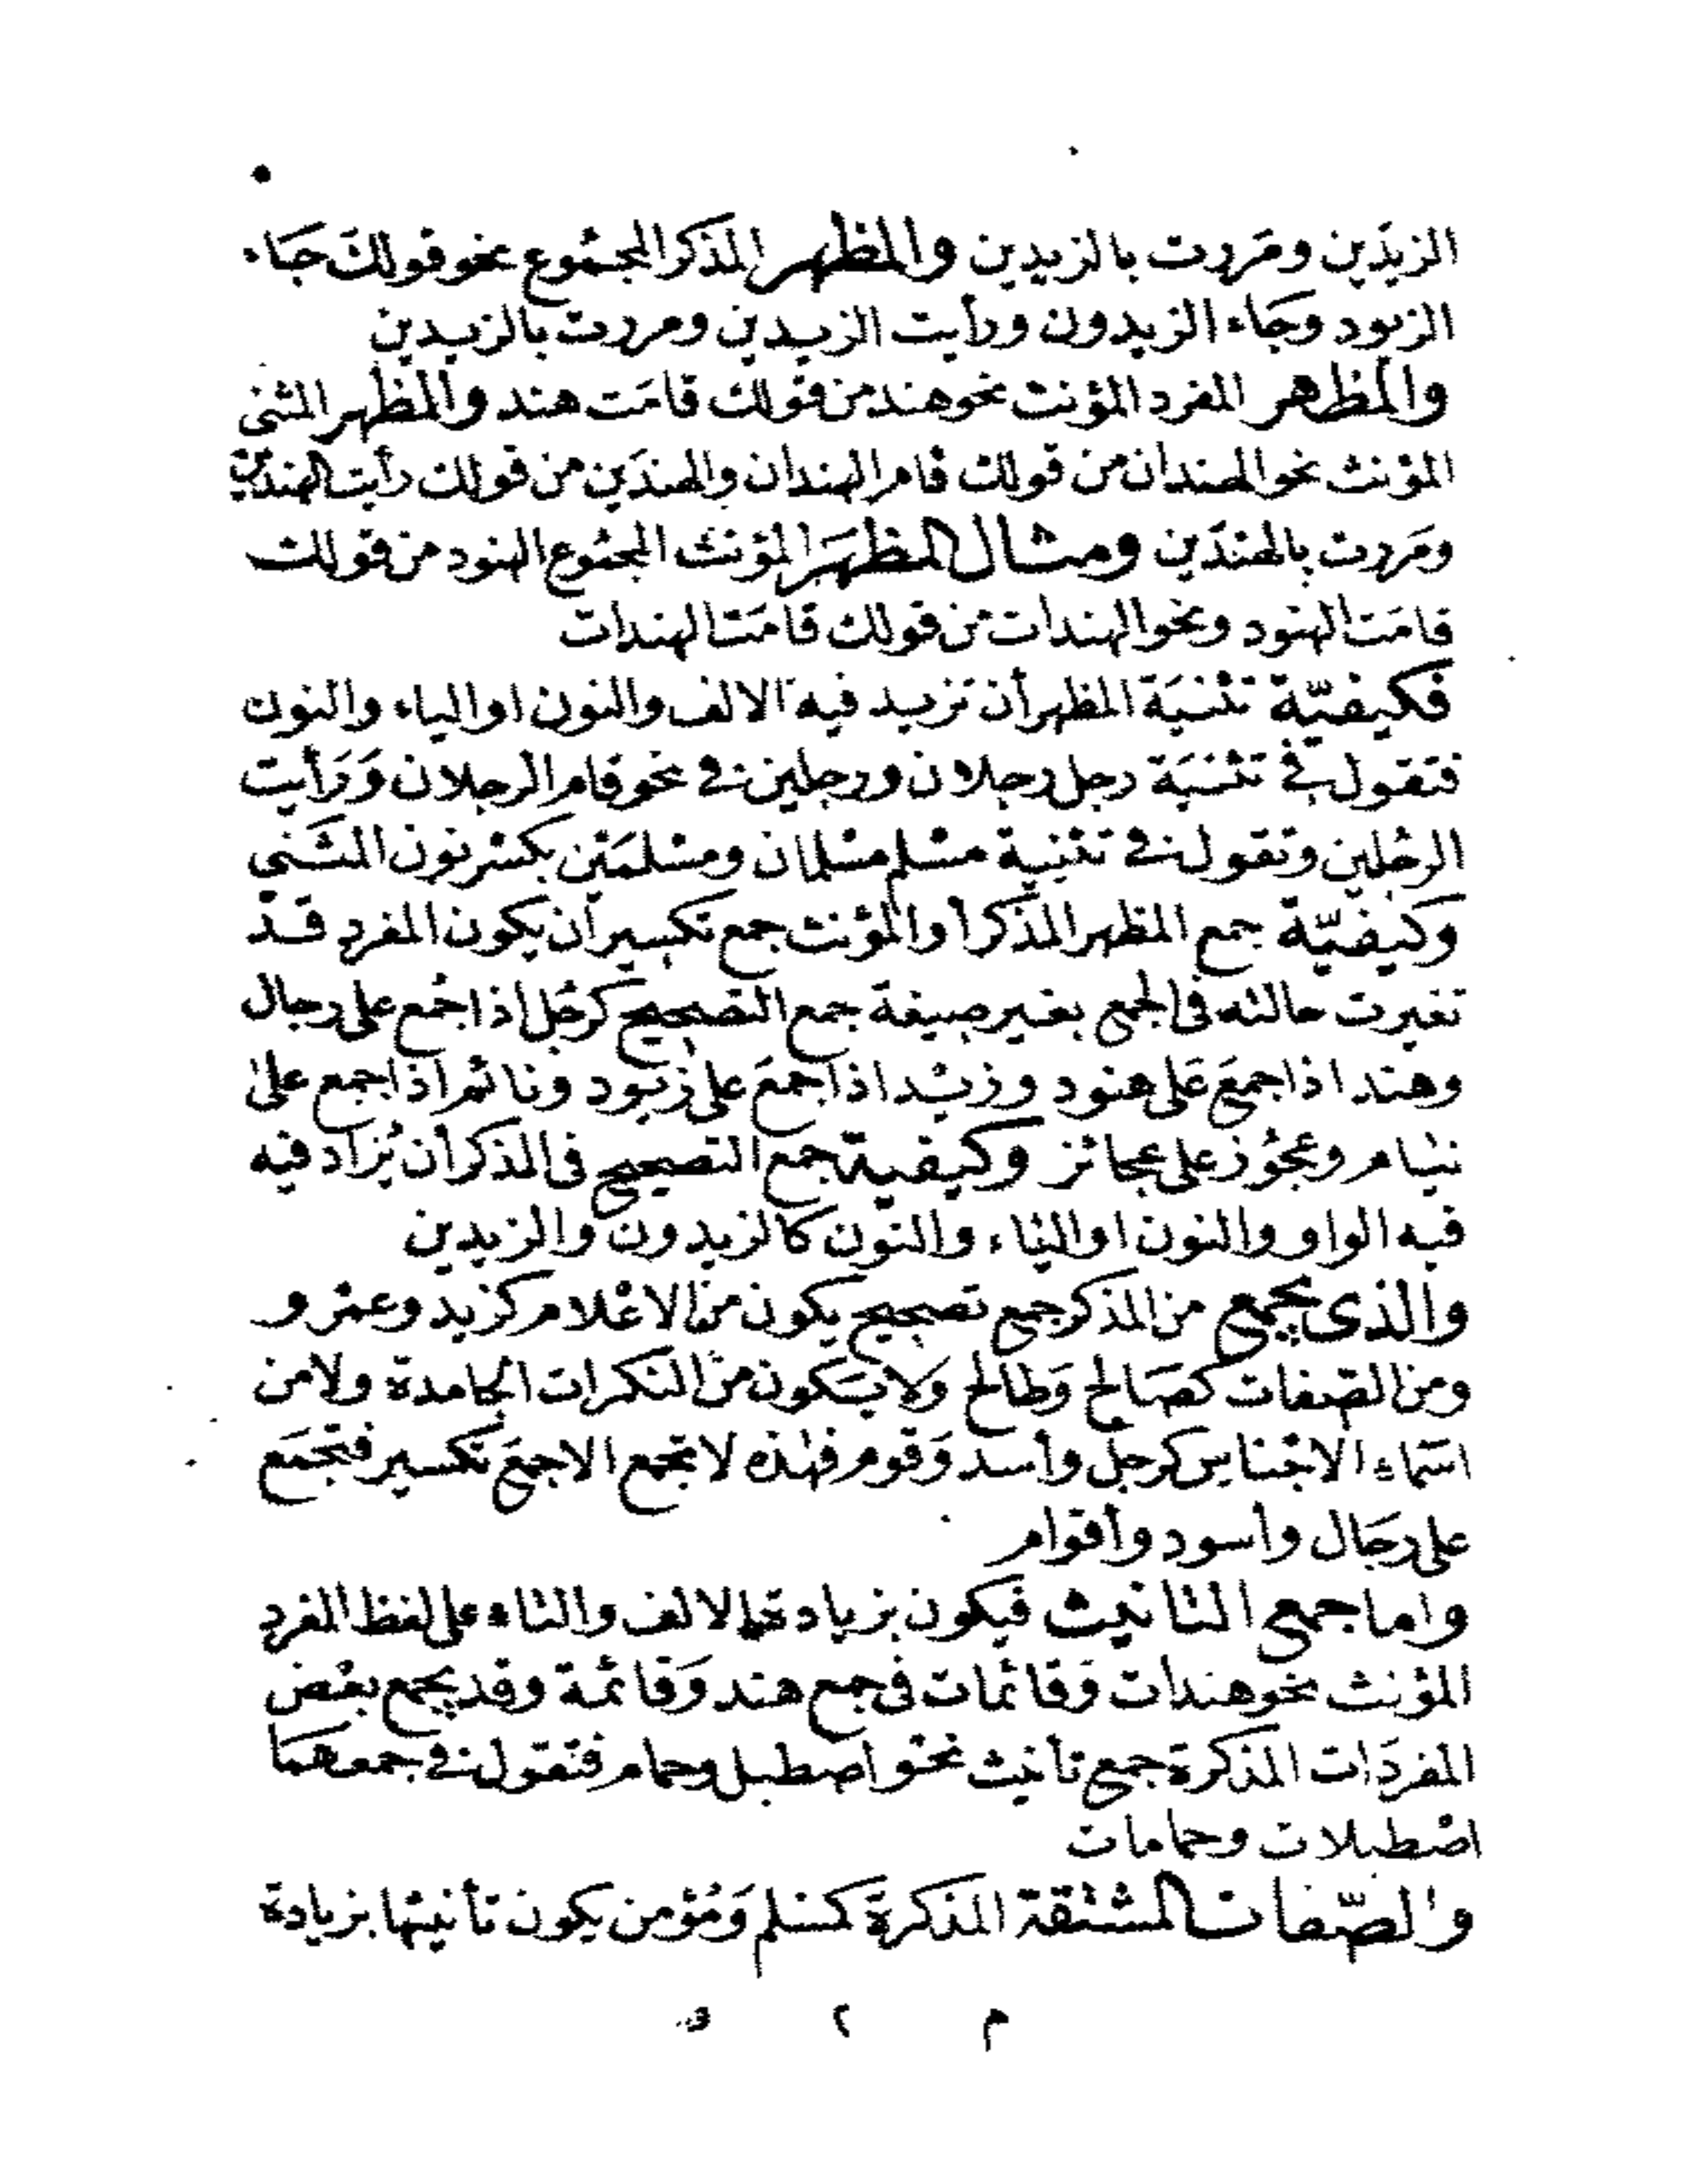 ٠
الزيدَين ومَررت بالزيدين والمظهر المذكر المجمُوع نحو قولكَ جَاء
الزيود وجَاء الزيدون ورأيت الزيدين ومررت بالزيدين
والمظهر المفرد المؤنث نحو هند من قولك قامَت هند والمظهر المثنى
المؤنث نحو الهندان من قولك قام الهندان والهندَين من قولك رأيت الهندَين
ومَررت بالهندَين ومثال المظهَر المؤنث المجمُوع الهنود من قولك
قامَت الهنود ونحو الهندات من قولك قامَت الهندات
فكيفيّة تثنيَة المظهر أن تزيد فيه الالف والنون او الياء والنون
فتقول في تثنيَة رجل رجلان ورجلين في نحو قام الرجلان وَرَأيت
الرجُلين وتقول في تثنية مسْلم مسْلمان ومسْلمَين بكسْر نون المثَنى
وَكيفيّة جمع المظهر المذكر او المؤنث جمع تكسير أن يكون المفرد قد
تغيرت حالته في الجمع بغير صيغة جمع التصحيح كرجُل اذا جُمع على رجال
وهند اذا جمعَ عَلى هنود وزيْد اذا جمعَ على زيود ونائم اذا جمع على
نيام وعجُوز على عجائز وكيفية جمع التصحيح فى المذكر أن يُزاد فيه
فيه الواو والنون او الياء والنون كالزيدون والزيدين
والذى يجمع من المذكر جمع تصحيح يكون من الاعْلام كزيد وعمْرو
ومن الصّفات كصَالح وَطالح وَلا يَكون من النكرات الجامدة ولا من
اسَماء الاجْناس كرجل وأسد وَقوم فهٰذه لا تجمع الا جمعَ تكسير فتجمَع
على رجَال وأسود وأقوام
واما جمع التانيث فيكون بزيادة الالف والتاء على لفظ المفرد
المؤنث نحو هندات وَقائمات فى جمع هند وَقائمة وقد يجمع بعْض
المفردَات المذكرة جمع تأنيث نحْو اصطبل وحمام فتقول في جمعهمَا
اصْطبلات وحمامات
والصّفات المشتقة المذكرة كمسْلم وَمُؤمن يكون تأنيثها بزيادة
م ٢ ق